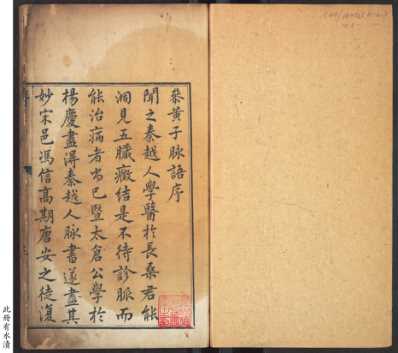 黃子脉語序
聞之秦越人學醫於長桑君能
洞見五臟癥結是不待診脈而
能治病者尚已暨太倉公學於
楊慶盡得秦越人脉書遂盡其
妙宋邑馮信高期唐安之徒復
此冊有水漬